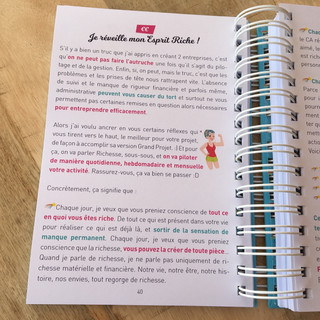 Je réveille mon Esprit Riche !
S'il y a bien un truc que j'ai appris en créant 2 entreprises, c'est
qu'on ne peut pas faire l'autruche une fois qu'il s'agit du pilo-
tage et de la gestion. Enfin, si, on peut, mais le truc, c'est que les
problèmes et les prises de tête nous rattrapent vite. L'absence
de suivi et le manque de rigueur financière et parfois même,
administrative peuvent vous causer du tort et surtout ne vous
permettent pas certaines remises en question alors nécessaires
pour entreprendre efficacement.
Alors j'ai voulu ancrer en vous certains réflexes qui
vous tirent vers le haut, le meilleur pour votre projet,
de façon à accomplir sa version Grand Projet. :) Et pour
ça, on va parler Richesse, sous-sous, et on va piloter
de manière quotidienne, hebdomadaire et mensuelle
votre activité. Rassurez-vous, ça va bien se passer :D
Concrètement, ça signifie que :
Chaque jour, je veux que vous preniez conscience de tout ce
en quoi vous êtes riche. De tout ce qui est présent dans votre vie
pour réaliser ce qui est déjà là, et sortir de la sensation de
manque permanent. Chaque jour, je veux que vous preniez
conscience que la richesse, vous pouvez la créer de toute pièce.
Quand je parle de richesse, je ne parle pas uniquement de ri-
chesse matérielle et financière. Notre vie, notre être, notre his-
toire, nos envies, tout regorge de richesse.
40